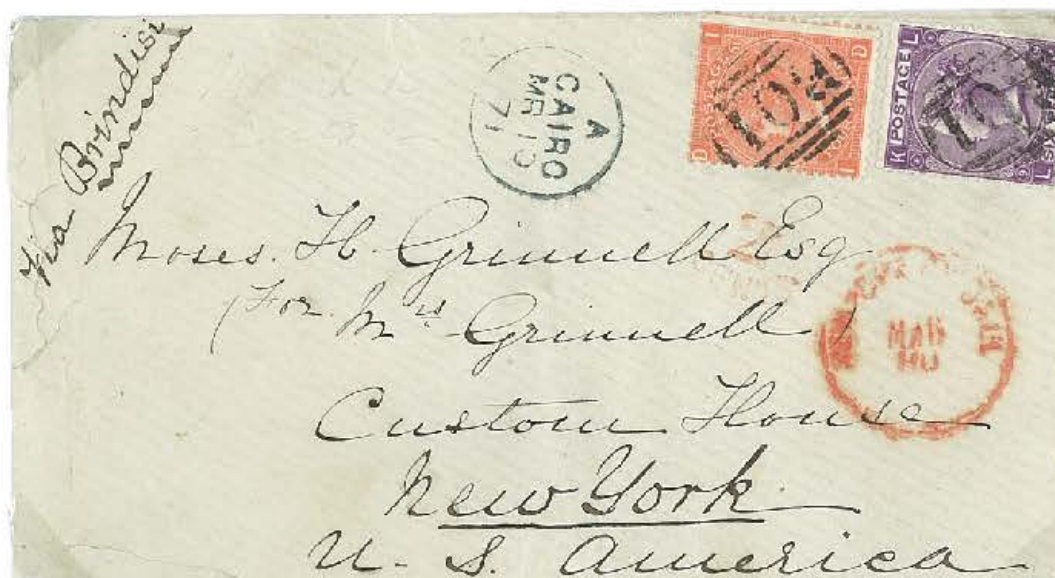 Via Brindisi
A
CAIRO
MR 10
71
D I
POSTAGE
I D
K POSTAGE L
L SIX
9
2
Moses. H. Grinnell Esq
(For Mrs Grinnell)
Custom House
New York
U. S. America